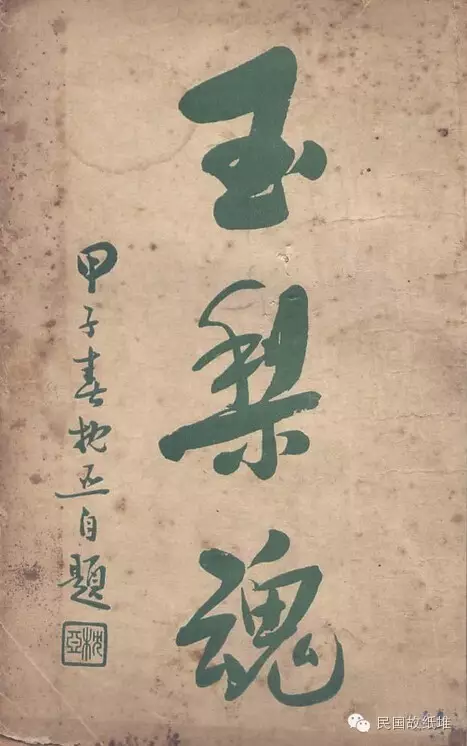 玉梨魂
甲子春枕亞自題
枕亞
民国故纸堆